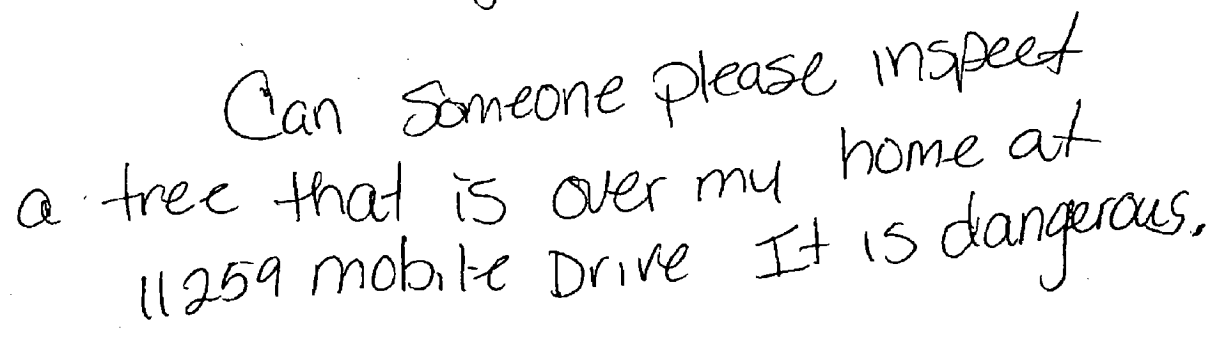 Can someone please inspect
a tree that is over my home at
11259 mobile Drive It is dangerous.